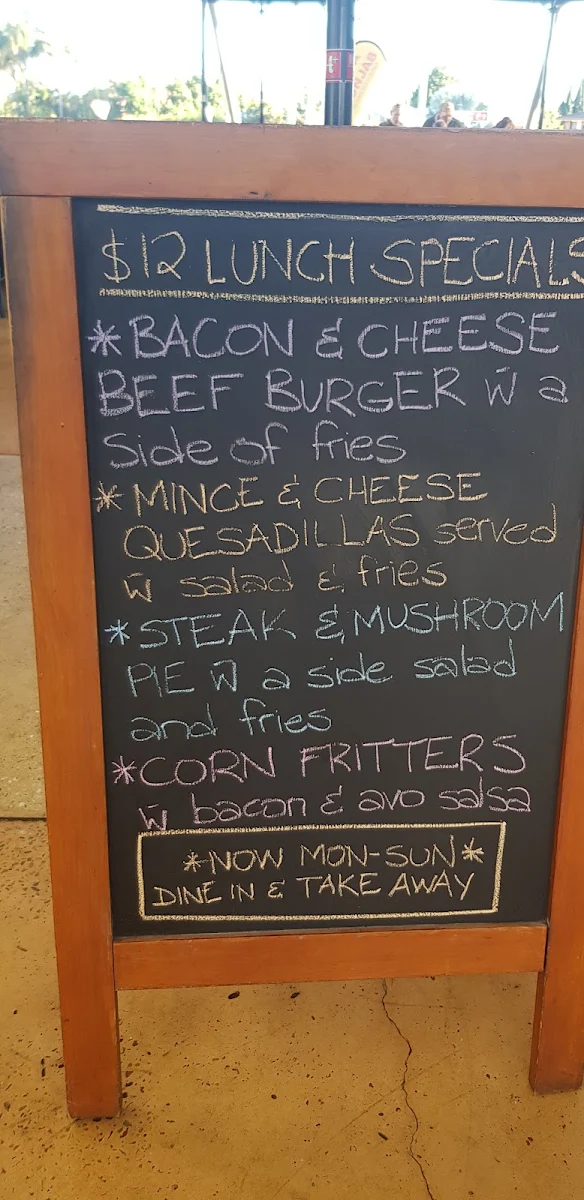 $12 LUNCH SPECIALS
*BACON & CHEESE
BEEF BURGER w a
Side of fries
*MINCE & CHEESE
QUESADILLAS served
w salad & fries
*STEAK & MUSHROOM
PIE w a side salad
and fries
*CORN FRITTERS
w bacon & avo salsa
*NOW MON-SUN*
DINE IN & TAKE AWAY